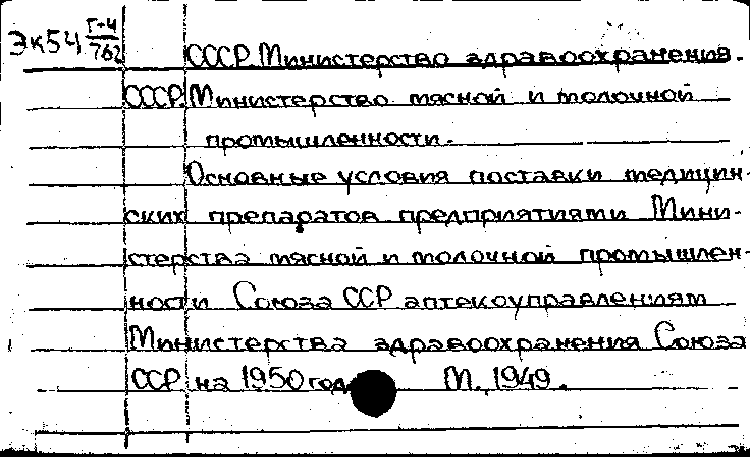 Эк54 Г-4/762
СССР. Министерство здравоохранения.
СССР. Министерство мясной и молочной
промышленности.
Основные условия поставки медицин-
ских препаратов предприятиями Мини-
стерства мясной и молочной промышлен-
ности Союза ССР аптекоуправлениям
Министерства здравоохранения Союза
ССР на 1950 год. М., 1949.